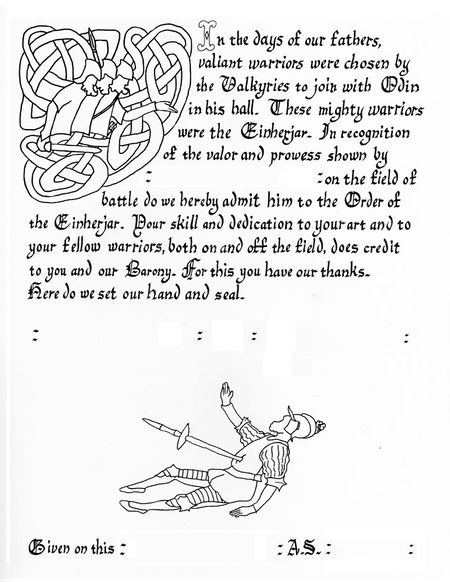 In the days of our fathers,
valiant warriors were chosen by
the Valkyries to join with Odin
in his hall. These mighty warriors
were the Einherjar. In recognition
of the valor and prowess shown by
: : on the field of
battle do we hereby admit him to the Order of
the Einherjar. Your skill and dedication to your art and to
your fellow warriors, both on and off the field, does credit
to you and our Barony. For this you have our thanks.
Here do we set our hand and seal.
: : : :
Given on this : : A.S. : :